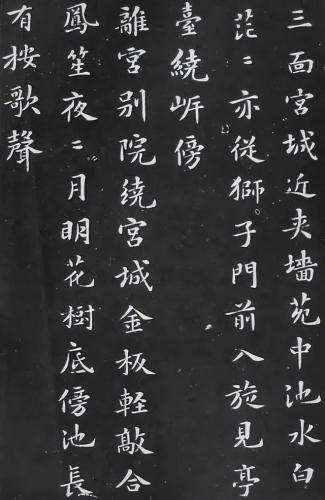 三面宮城近夾墻苑中池水白
茫〻亦從獅子門前入旋見亭
臺繞岸傍
離宮别院繞宮城金板輕敲合
鳳笙夜〻月明花樹底傍池長
有按歌聲